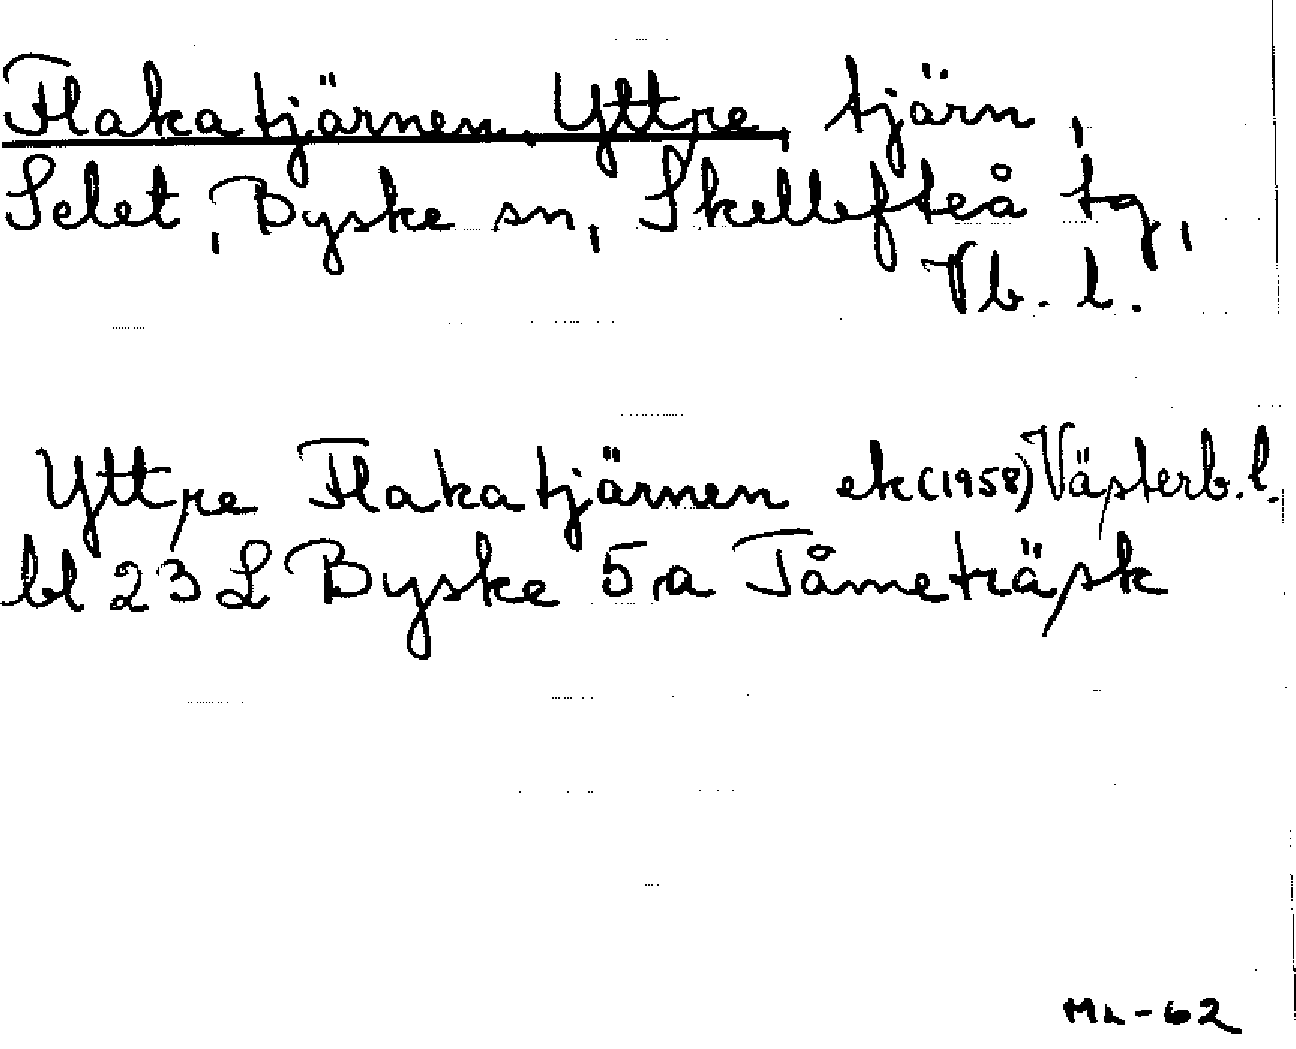 Flakatjärnen, Yttre, tjärn,
Selet, Byske sn, Skellefteå tg,
Vb. l.
Yttre Flakatjärnen ek (1958) Västerb. l.
bl 23 L Byske 5 a Tåmeträsk
ML-62